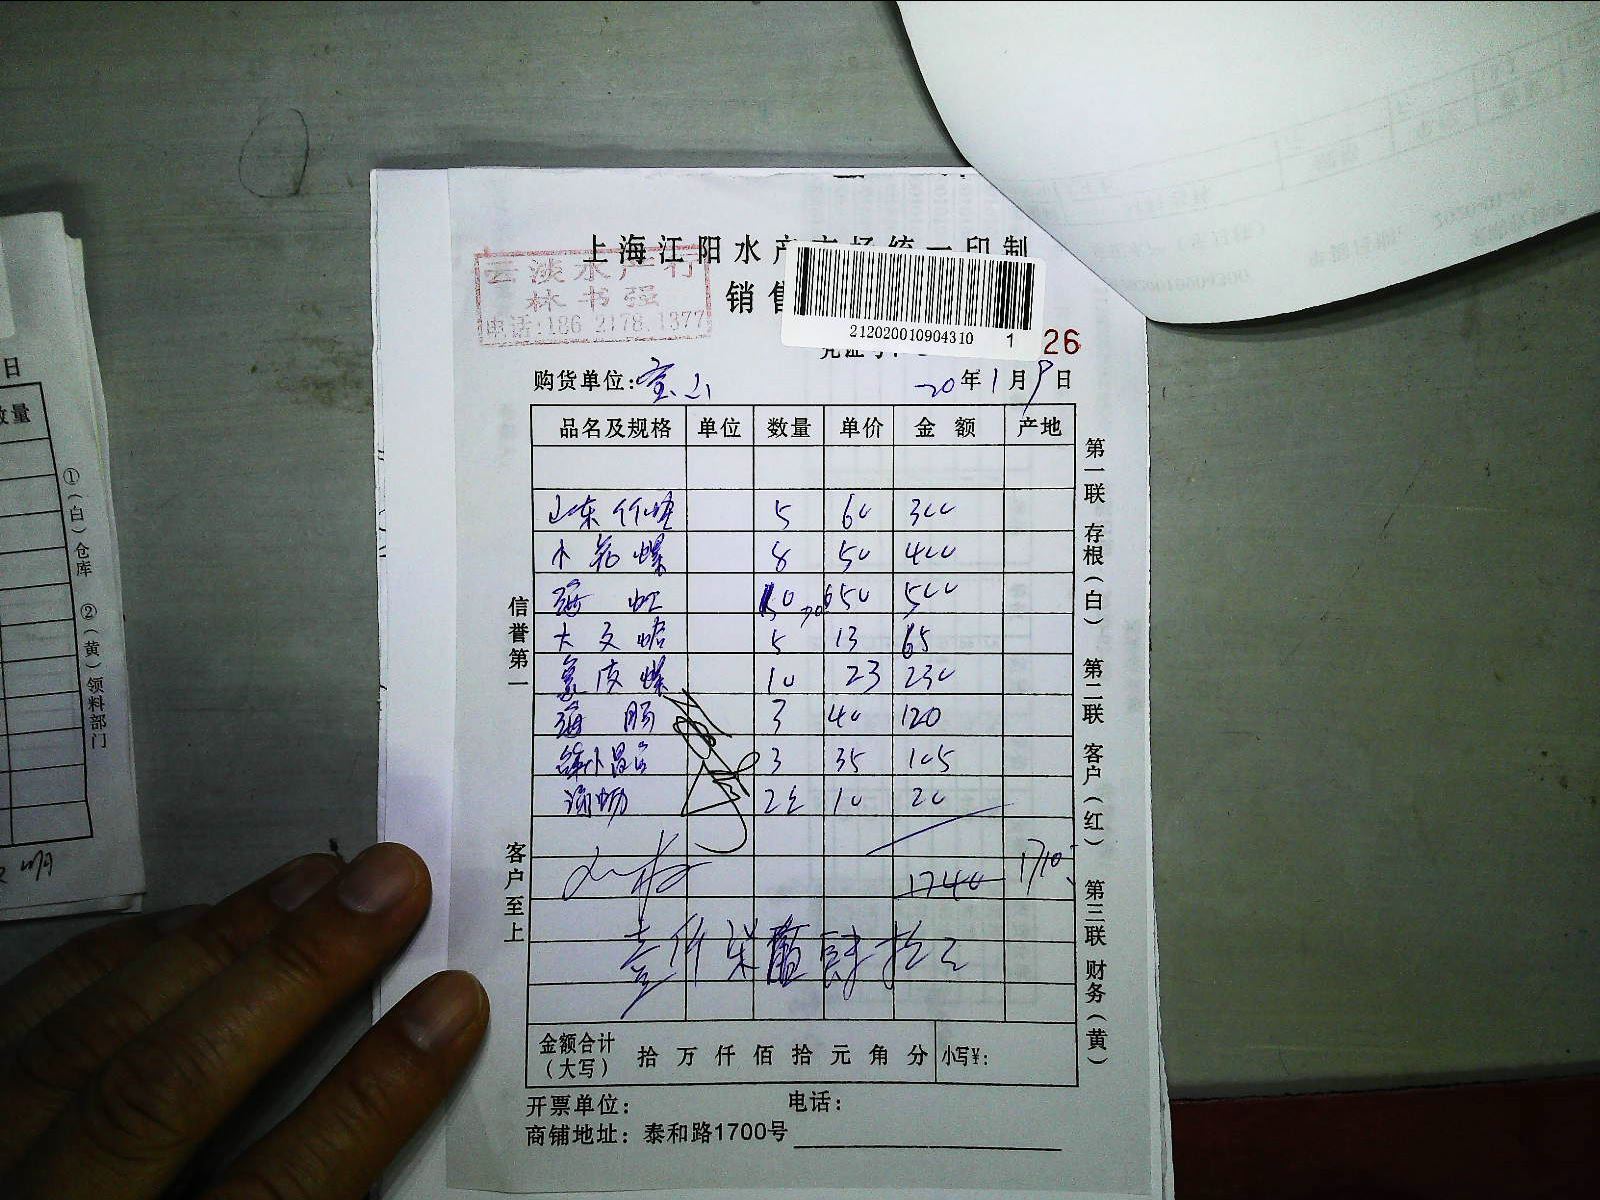 上海江阳水产市场统一印制
云淡水产行
林书强
电话:186 2178 1377
销售
212020010904310 1
26
购货单位: 宝山 20年1月9日
品名及规格 单位 数量 单价 金额 产地
山东竹蛏 5 60 300
小花螺 8 50 400
海虹 10 50 500
大文蛤 5 13 65
5 23 230
海肠 3 40 120
3 35 105
海蛎 2 10 20
1740 1710
壹仟柒佰肆拾元
金额合计(大写) 拾万仟佰拾元角分 小写¥:
开票单位: 电话:
商铺地址: 泰和路1700号
信誉第一
客户至上
第一联 存根(白) 第二联 客户(红) 第三联 财务(黄)
日
数量
①(白)仓库 ②(黄)领料部门
明